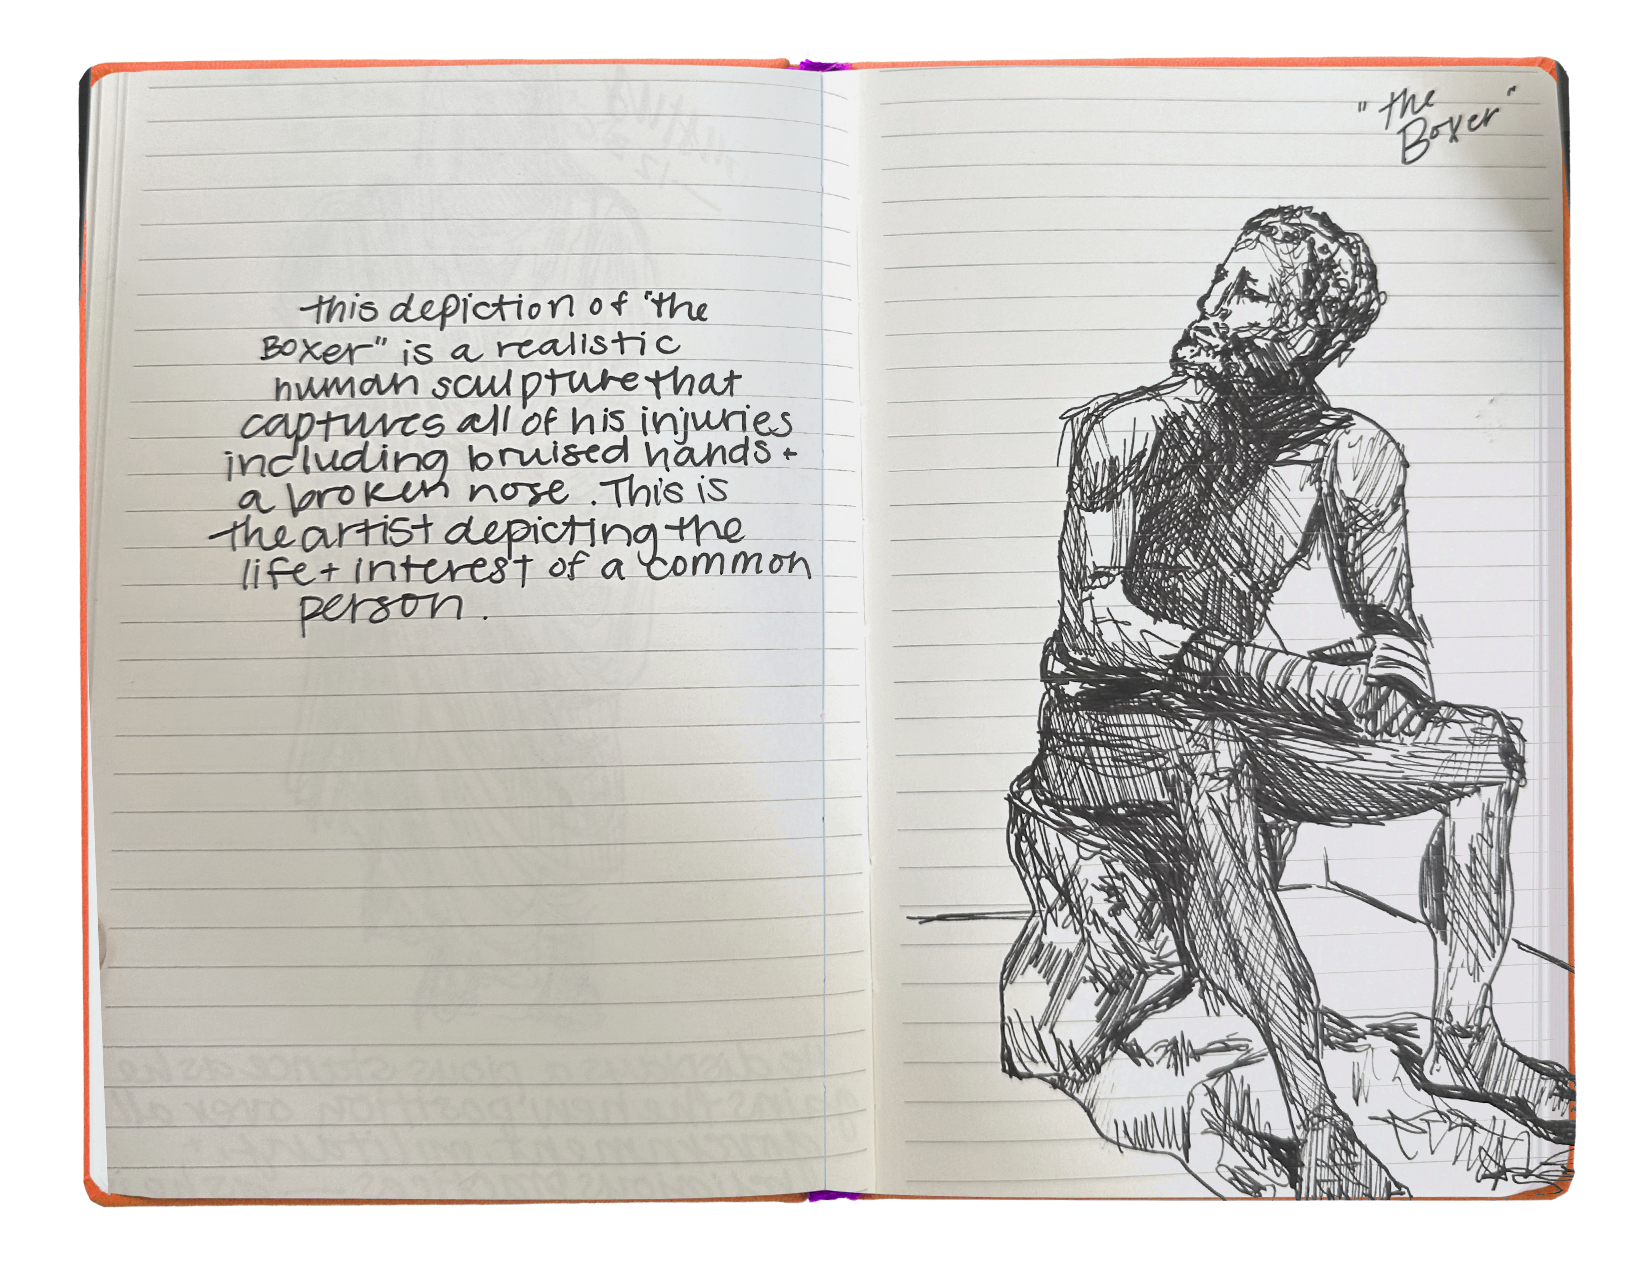 this depiction of "the
Boxer" is a realistic
human sculpture that
captures all of his injuries
including bruised hands +
a broken nose. This is
the artist depicting the
life + interest of a common
person.
"the
Boxer"